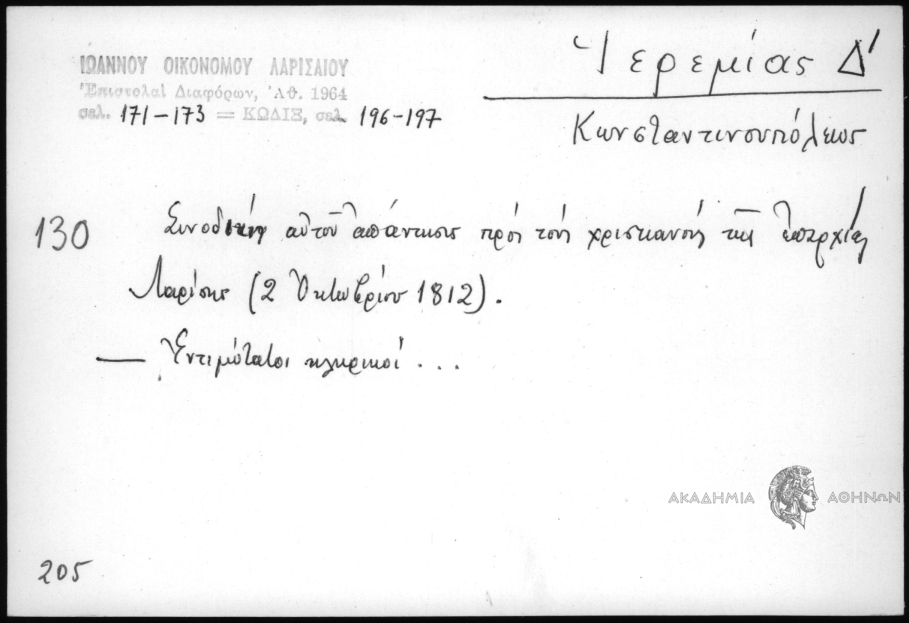 ΙΩΑΝΝΟΥ ΟΙΚΟΝΟΜΟΥ ΛΑΡΙΣΑΙΟΥ
Ἐπιστολαί Διαφόρων, Ἀθ. 1964
σελ. 171-173 = ΚΩΔΙΞ, σελ. 196-197
Ἱερεμίας Δ'
Κωνσταντινουπόλεως
130 Συνοδική αὐτοῦ ἀπάντησις πρός τούς χριστιανούς τῆς ἐπαρχίας
Λαρίσης (2 Ὀκτωβρίου 1812).
— Ἐντιμότατοι κληρικοί ...
ΑΚΑΔΗΜΙΑ ΑΘΗΝΩΝ
205